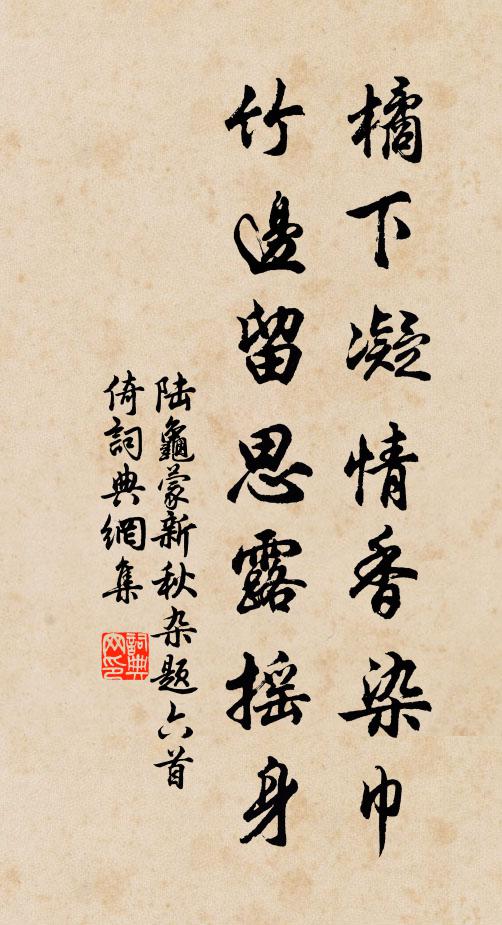 橘下凝情香染巾
竹邊留思露摇身
陆龜蒙新秋杂题六首
倚詞典網集
詞典
网印